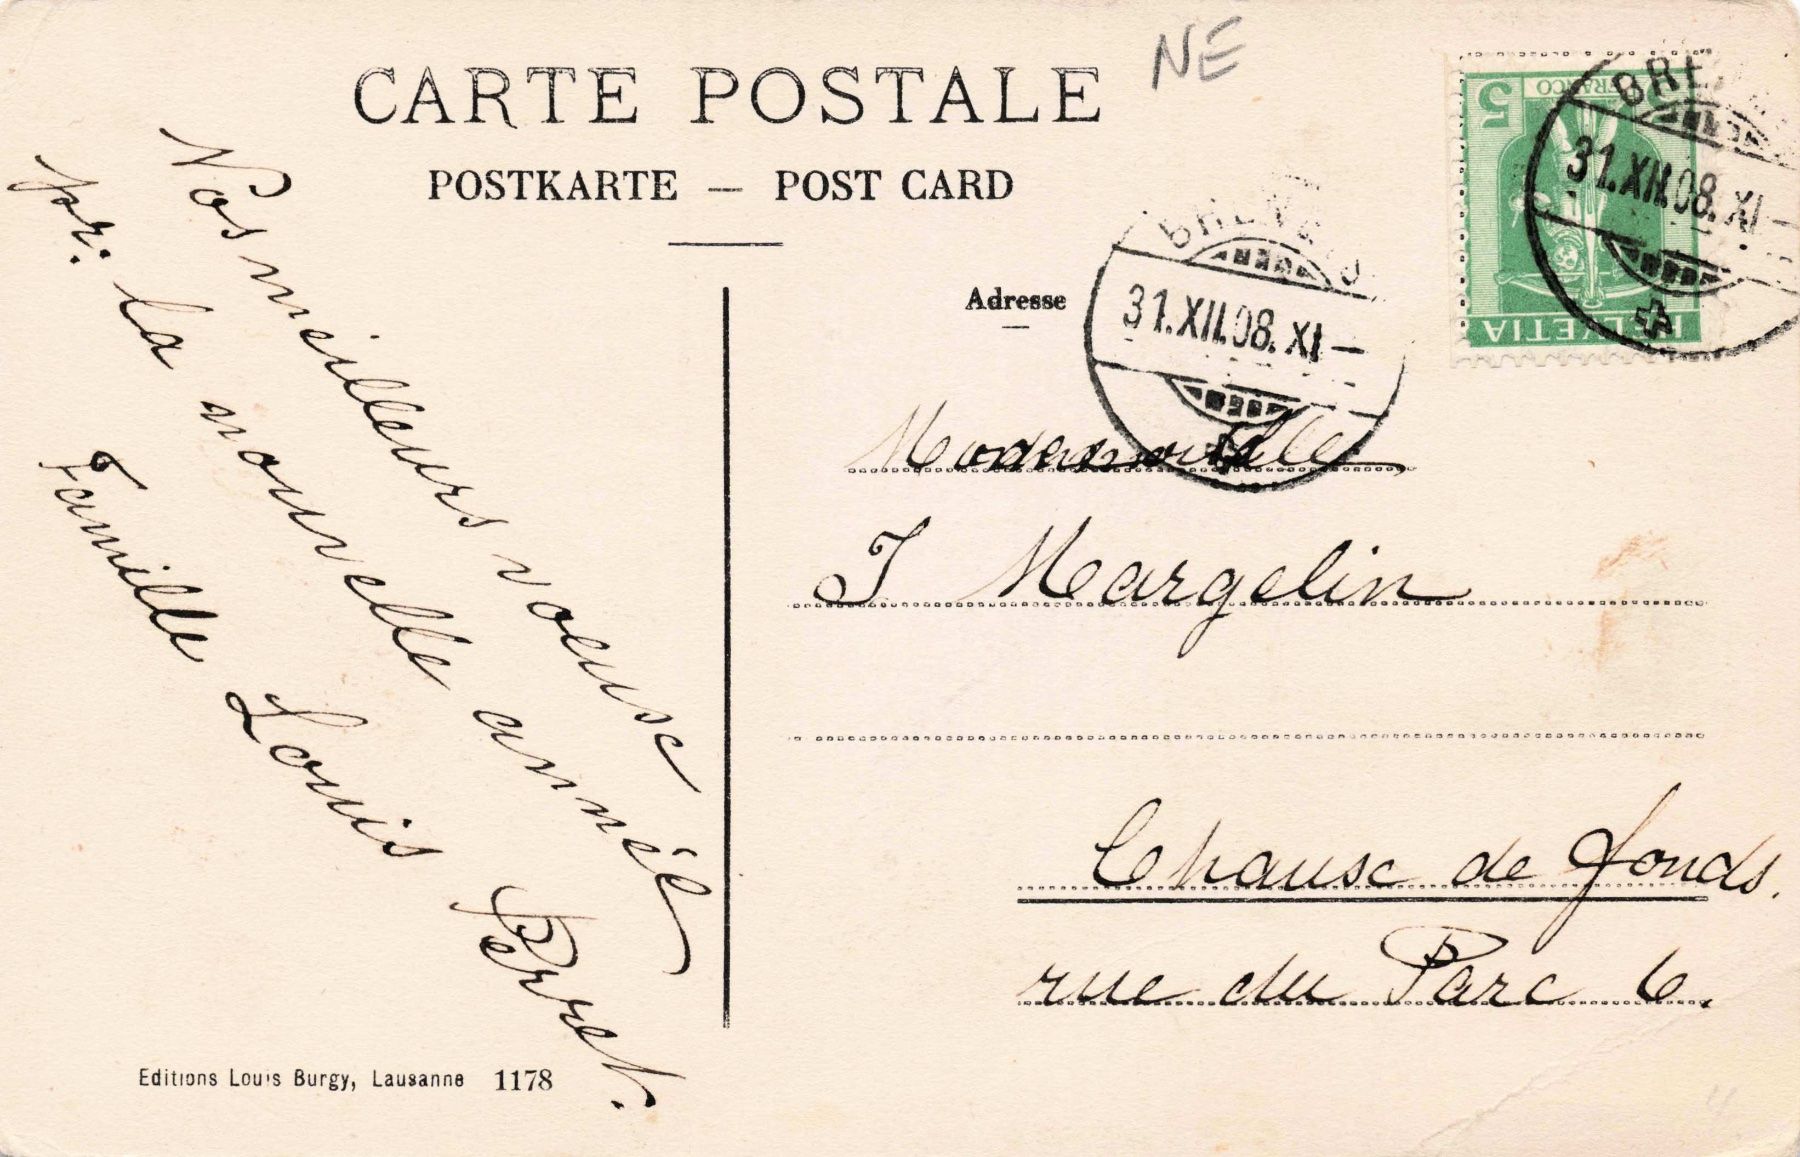 CARTE POSTALE
NE
POSTKARTE — POST CARD
Adresse
5 FRANCO
HELVETIA
31.XII.08.XI–
31.XII.08.XI–
Nos meilleurs voeuse
pr: la nouvelle année
Famille Louis Perret.
Mademoiselle
J Margelin
Chause de fonds.
rue du Parc 6.
Editions Louis Burgy, Lausanne 1178